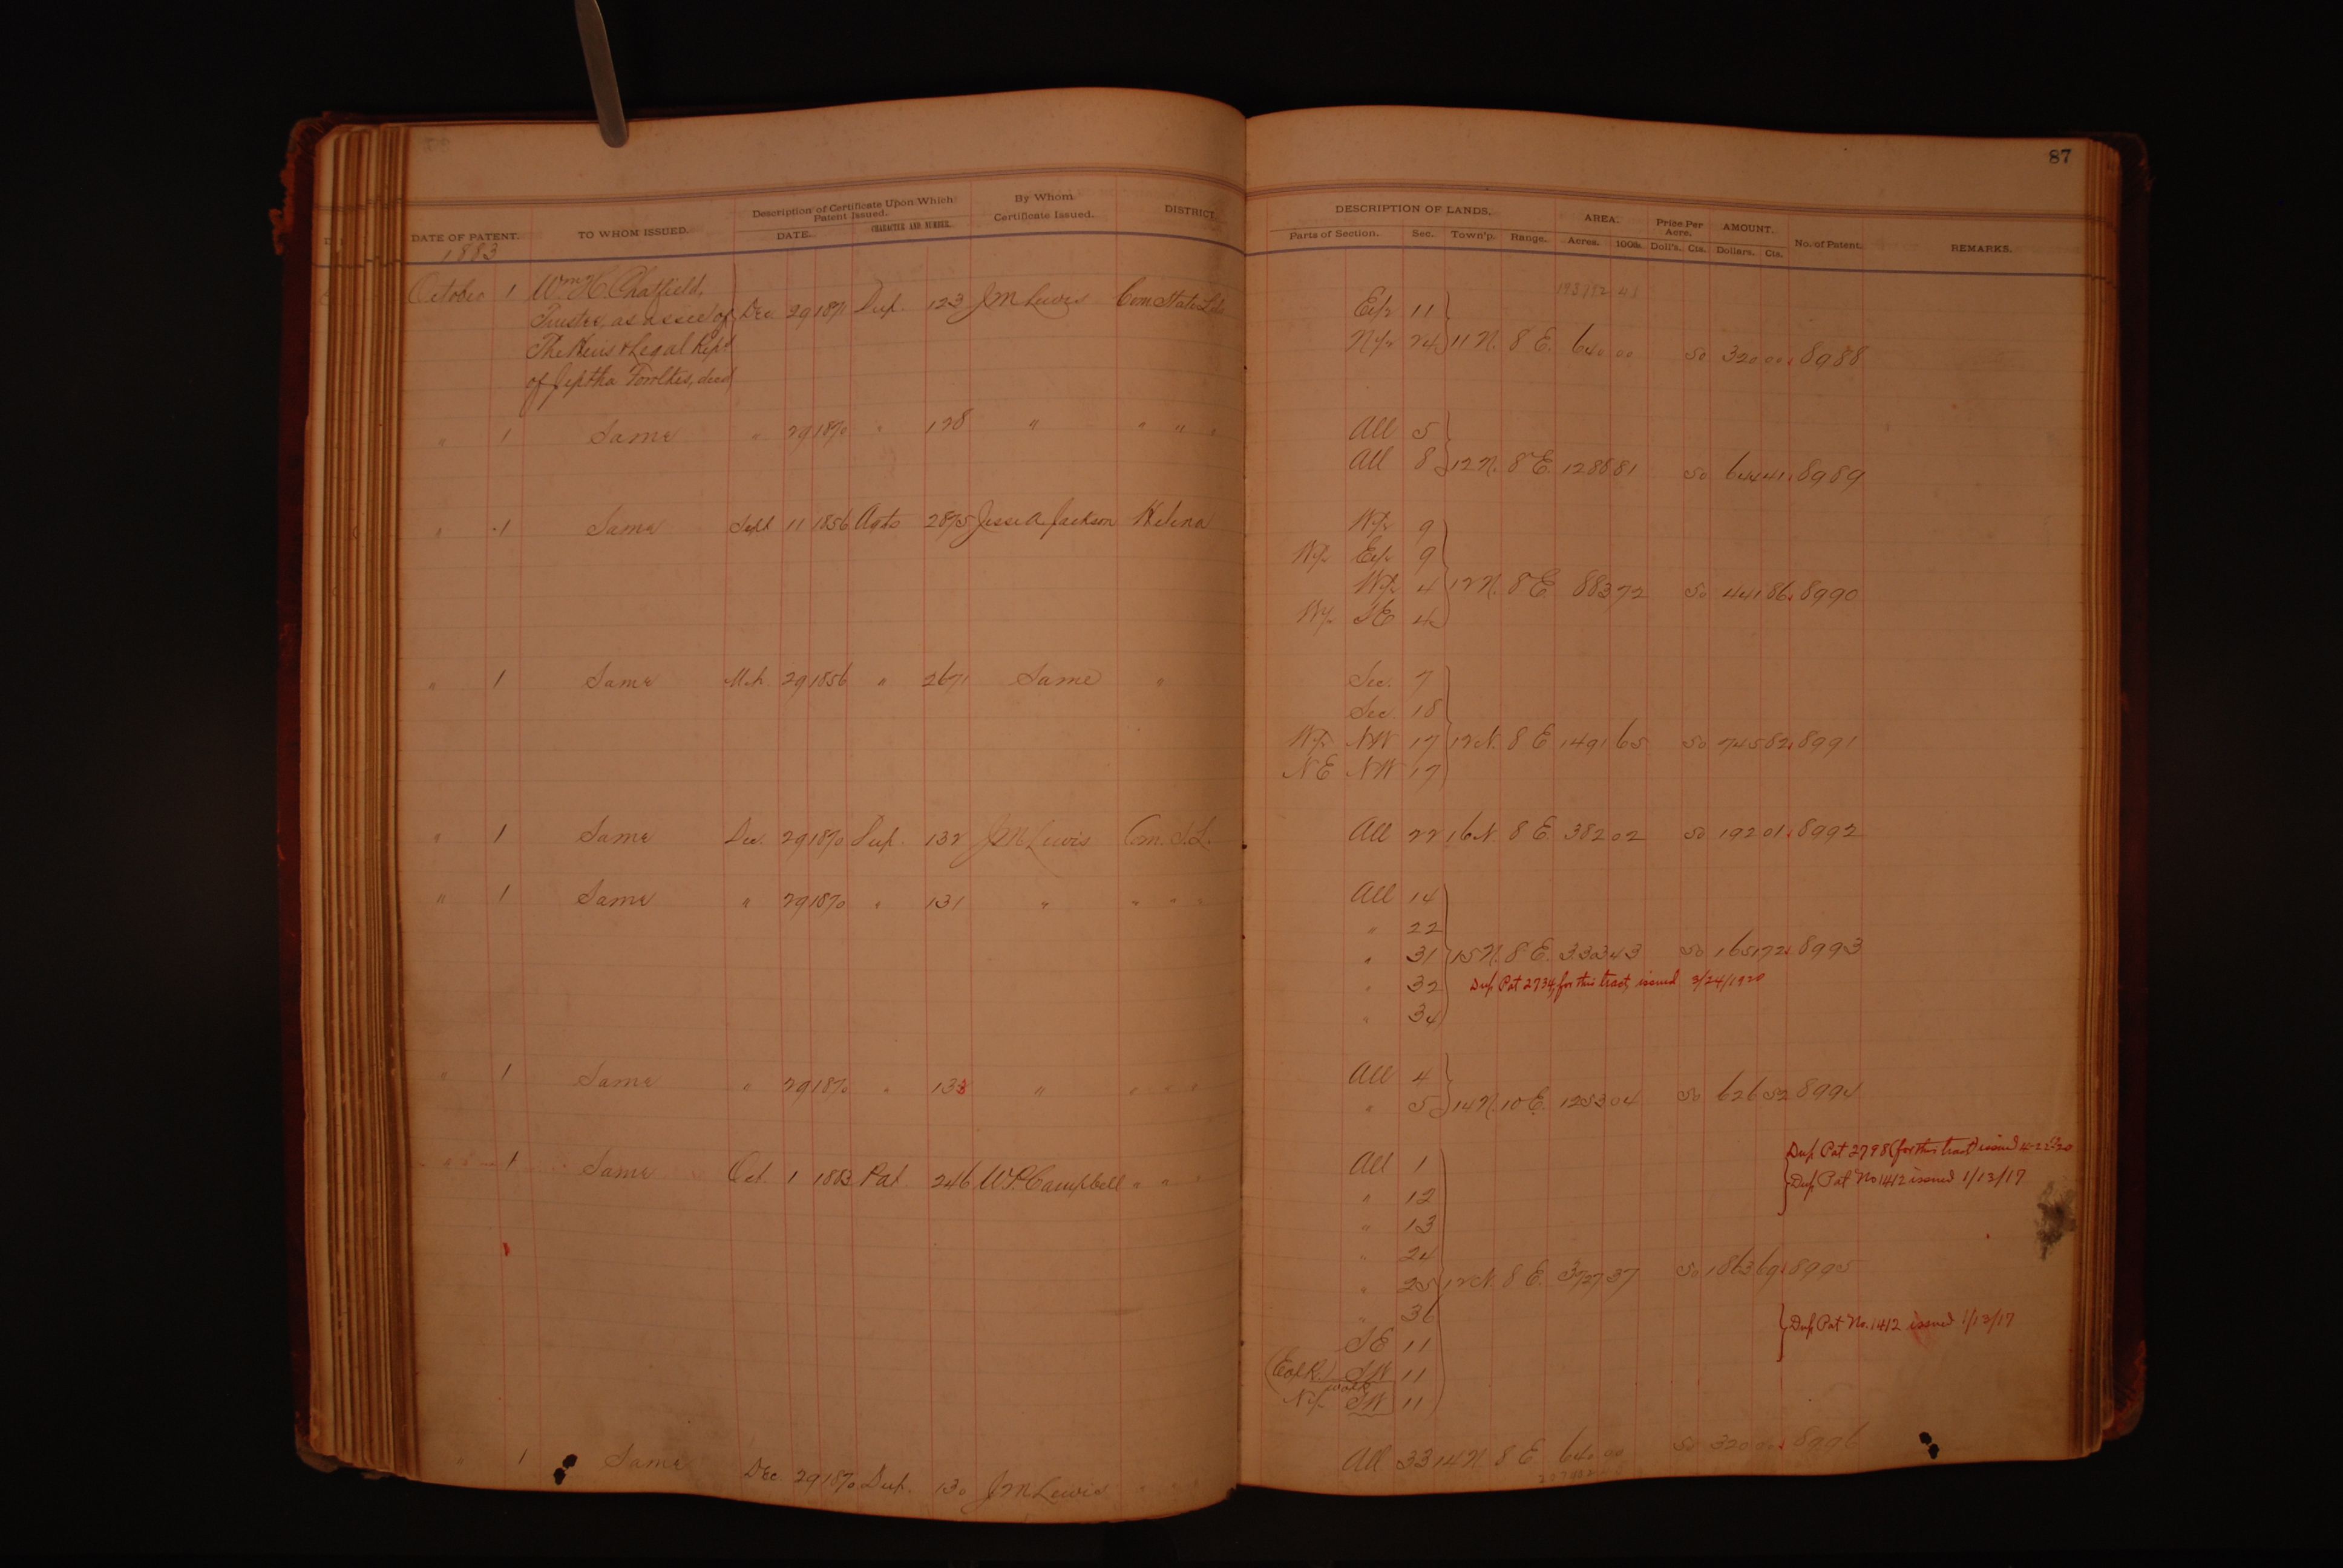 87
DATE OF PATENT. TO WHOM ISSUED. Description of Certificate Upon Which Patent Issued. DATE. CHARACTER AND NUMBER. By Whom Certificate Issued. DISTRICT.
DESCRIPTION OF LANDS. Parts of Section. Sec. Town'p. Range. AREA. Acres. 100ths. Price Per Acre. Doll's. Cts. AMOUNT. Dollars. Cts. No. of Patent. REMARKS.
1883
October 1 Wm H. Chatfield,
Trustee, as assee of Dec 29 1871 Dup. 123 J M Lewis Com State Lds E½ 11
The Heirs & Legal Reps N½ 24 11 N. 8 E. 640 00 50 320 00 8988
of Jeptha Fowlkes, decd
" 1 Same " 29 1870 " 128 " " " " All 5
All 8 12 N. 8 E. 1288 81 50 644 41 8989
" 1 Same Sept 11 1856 Agts 2875 Jesse A. Jackson Helena W½ 9
W½ E½ 9
W½ 4 12 N. 8 E. 883 72 50 441 86 8990
W½ SE 4
" 1 Same Mch. 29 1856 " 2671 Same " Sec. 7
Sec. 18
W½ NW 17 12 N. 8 E 1491 65 50 745 82 8991
NE NW 17
" 1 Same Dec. 29 1870 Dup. 132 J M Lewis Com. S.L. All 22 16 N. 8 E. 382 02 50 192 01 8992
" 1 Same " 29 1870 " 131 " " " " All 14
" 22
" 31 15 N. 8 E. 3303 43 50 1651 72 8993
" 32 Dup Pat 2734, for this tract, issued 3/24/1920
" 34
" 1 Same " 29 1870 " 133 " " " " All 4
" 5 14 N. 10 E. 1253 04 50 626 52 8994
Dup Pat 2798 (for this tract) issued 4-22-20
" " 1 Same Oct 1 1883 Pat 246 W P Campbell " " " All 1
" 12 Dup Pat No 1412 issued 1/13/17
" 13
" 24
" 25 12 N. 8 E. 3727 37 50 1863 69 8995
" 36
SE 11 Dup Pat No. 1412 issued 1/13/17
SW 11
N½ SW 11
" 1 Same Dec. 29 1870 Dup. 130 J M Lewis " " " All 33 14 N. 8 E 640 00 50 320 00 8996